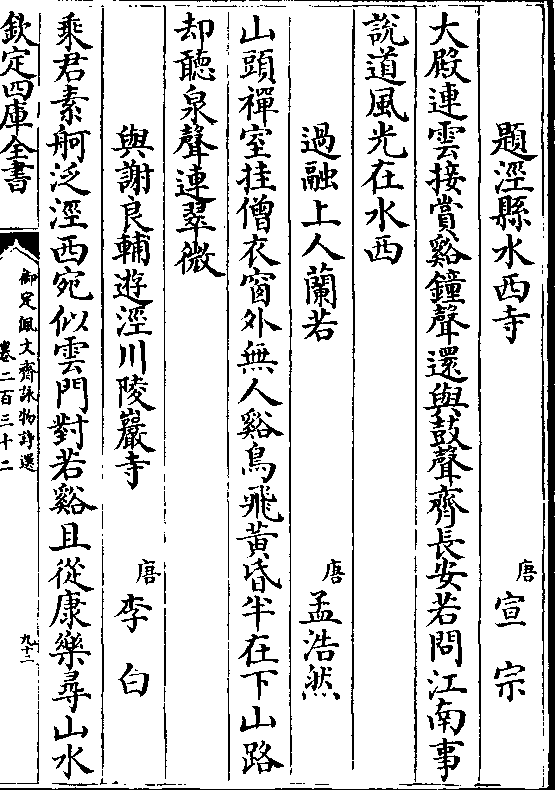 題涇縣水西寺　唐 宣宗
大殿連雲接賞谿鐘聲還與鼓聲齊長安若問江南事
說道風光在水西
過融上人蘭若　唐 孟浩然
山頭禪室挂僧衣窗外無人谿鳥飛黃昏半在下山路
却聽泉聲連翠微
與謝良輔遊涇川陵巖寺　唐 李白
乘君素舸泛涇西宛似雲門對若谿且從康樂尋山水
欽定四庫全書
御定佩文齋詠物詩選
卷二百三十二
九十二